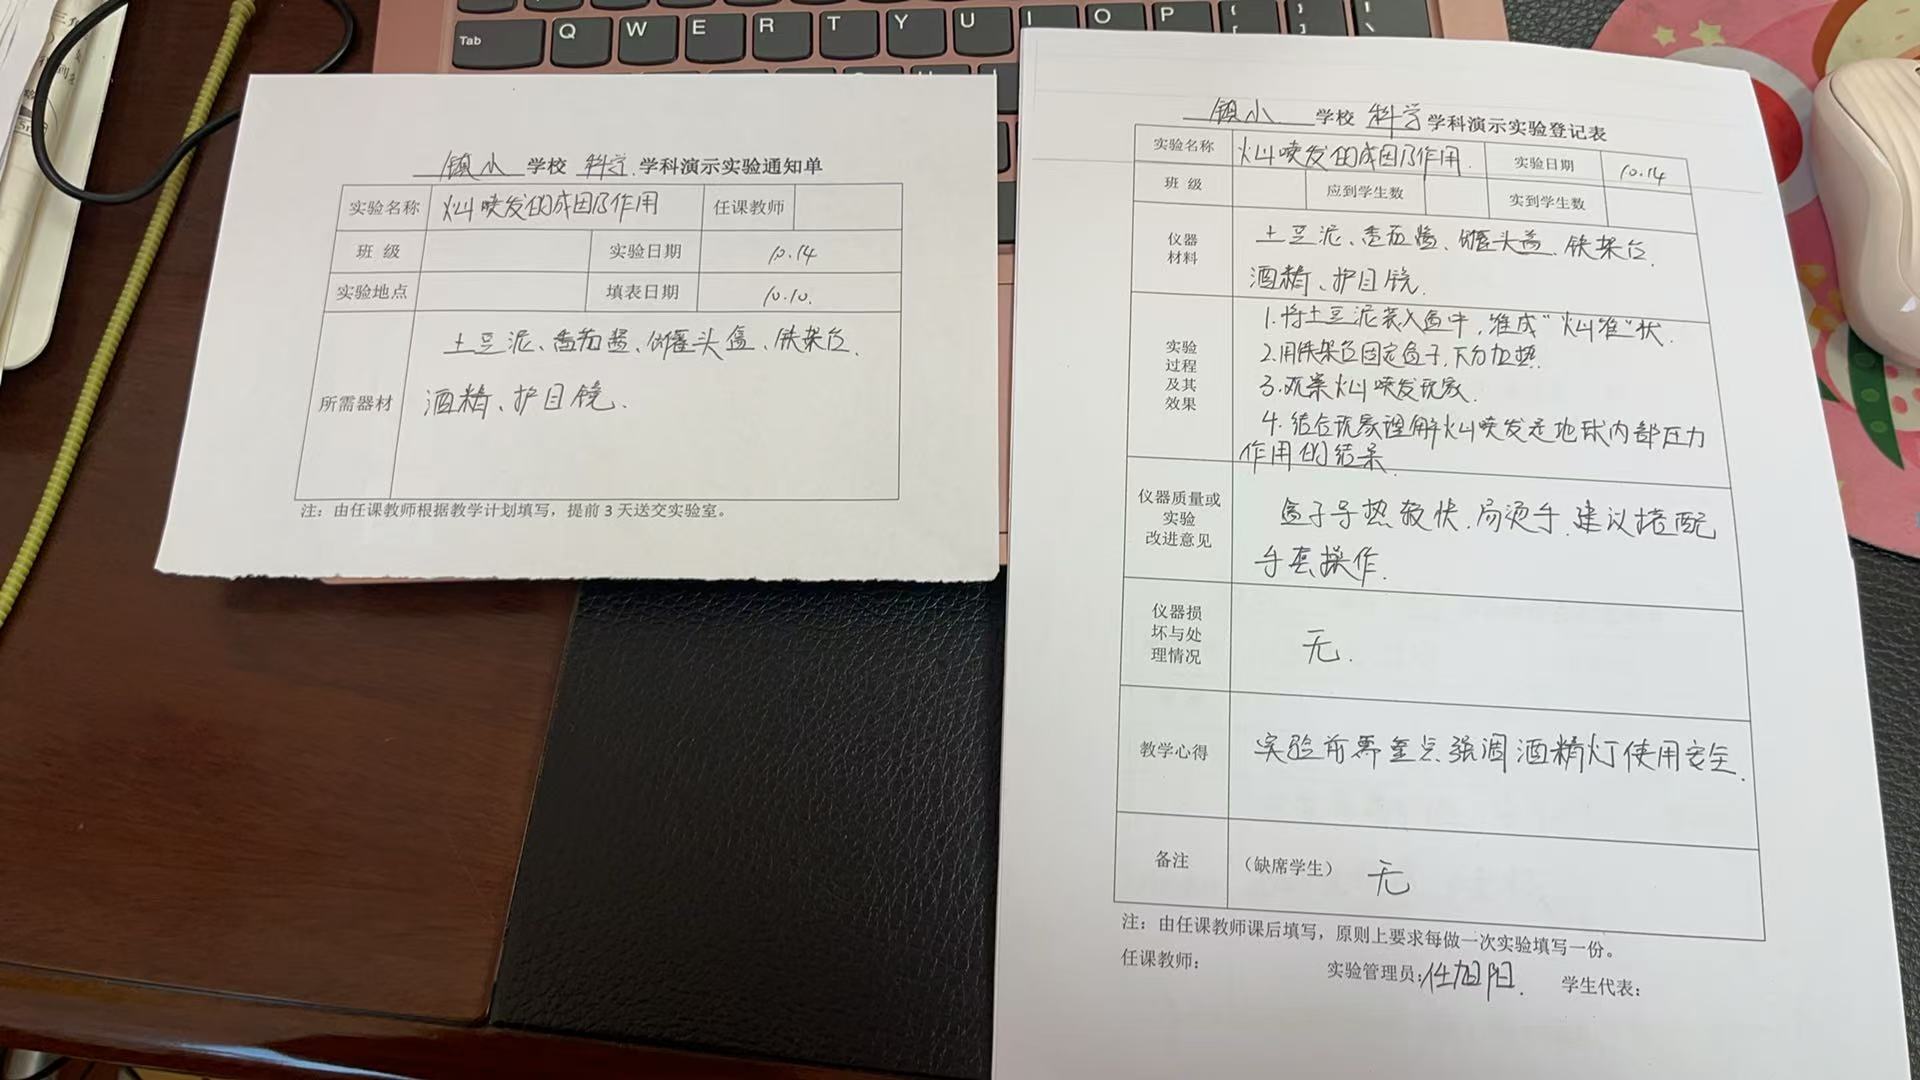 Tab Q W E R T Y U I O P
镇小 学校 科学 学科演示实验通知单
实验名称 火山喷发的成因及作用 任课教师
班 级 实验日期 10.14
实验地点 填表日期 10.10.
所需器材
土豆泥、番茄酱、罐头盒、铁架台、
酒精、护目镜.
注：由任课教师根据教学计划填写，提前 3 天送交实验室。
镇小 学校 科学 学科演示实验登记表
实验名称 火山喷发的成因及作用. 实验日期 10.14
班 级 应到学生数 实到学生数
仪器
材料
土豆泥、番茄酱、罐头盒、铁架台、
酒精、护目镜.
实验
过程
及其
效果
1.将土豆泥装入盒中,堆成“火山堆”状.
2.用铁架台固定盒子,下方加热.
3.观察火山喷发现象.
4.结合现象理解火山喷发是地球内部压力
作用的结果.
仪器质量或
实验
改进意见
盒子导热较快.易烫手.建议搭配
手套操作.
仪器损
坏与处
理情况
无.
教学心得
实验前需重点强调酒精灯使用安全.
备注 （缺席学生） 无
注：由任课教师课后填写，原则上要求每做一次实验填写一份。
任课教师： 实验管理员：任旭阳. 学生代表：